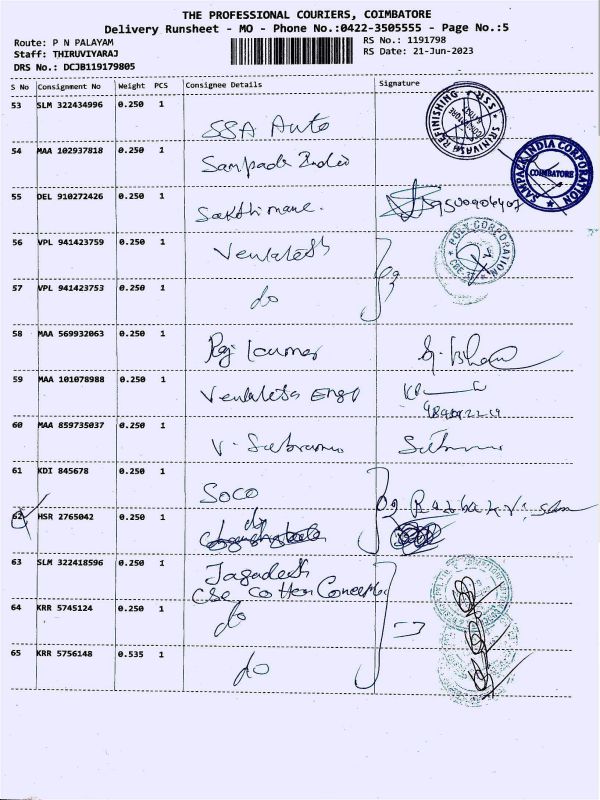 THE PROFESSIONAL COURIERS, COIMBATORE
Delivery Runsheet - MO - Phone No.:0422-3505555 - Page No.:5
Route: P N PALAYAM
RS No.: 1191798
Staff: THIRUVIYARAJ
RS Date: 21-Jun-2023
DRS No.: DCJB119179805
S No Consignment No Weight PCS Consignee Details Signature
53 SLM 322434996 0.250 1 SSA Auto
SRINIVASA REFINISHING
54 MAA 102937818 0.250 1 Sampack India
SAMPACK INDIA CORPORATION
COIMBATORE
55 DEL 910272426 0.250 1 Sakthi mane.
56 VPL 941423759 0.250 1 Venkatesh
POLY CORPORATION
57 VPL 941423753 0.250 1 do
58 MAA 569932063 0.250 1 Raj kumar
59 MAA 101078988 0.250 1 Venkatesa Engg
60 MAA 859735037 0.250 1 V. Subramni
61 KDI 845678 0.250 1 SOCO
62 HSR 2765042 0.250 1 do
63 SLM 322418596 0.250 1 Jagadesh
CSE Cotton
64 KRR 5745124 0.250 1 do
65 KRR 5756148 0.535 1 do